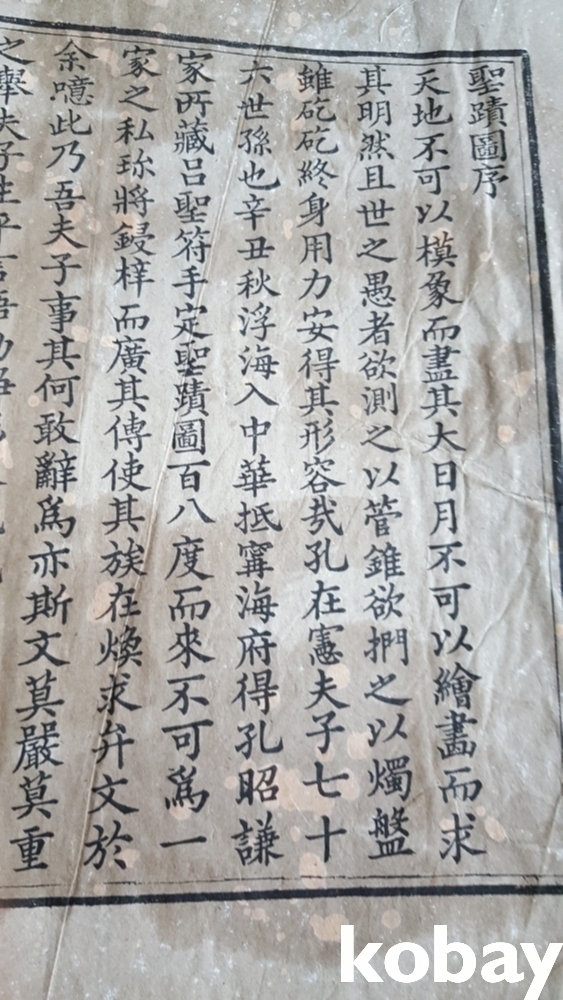 聖蹟圖序
天地不可以模象而盡其大日月不可以繪畵而求
其明然且世之愚者欲測之以管錐欲捫之以燭盤
雖矻矻終身用力安得其形容㢤孔在憲夫子七十
六世孫也辛丑秋浮海入中華抵甯海府得孔昭謙
家所藏呂聖符手定聖蹟圖百八度而來不可爲一
家之私珎將鋟梓而廣其傳使其族在煥求弁文於
余噫此乃吾夫子事其何敢辭爲亦斯文莫嚴莫重
之擧夫子生平言語
kobay